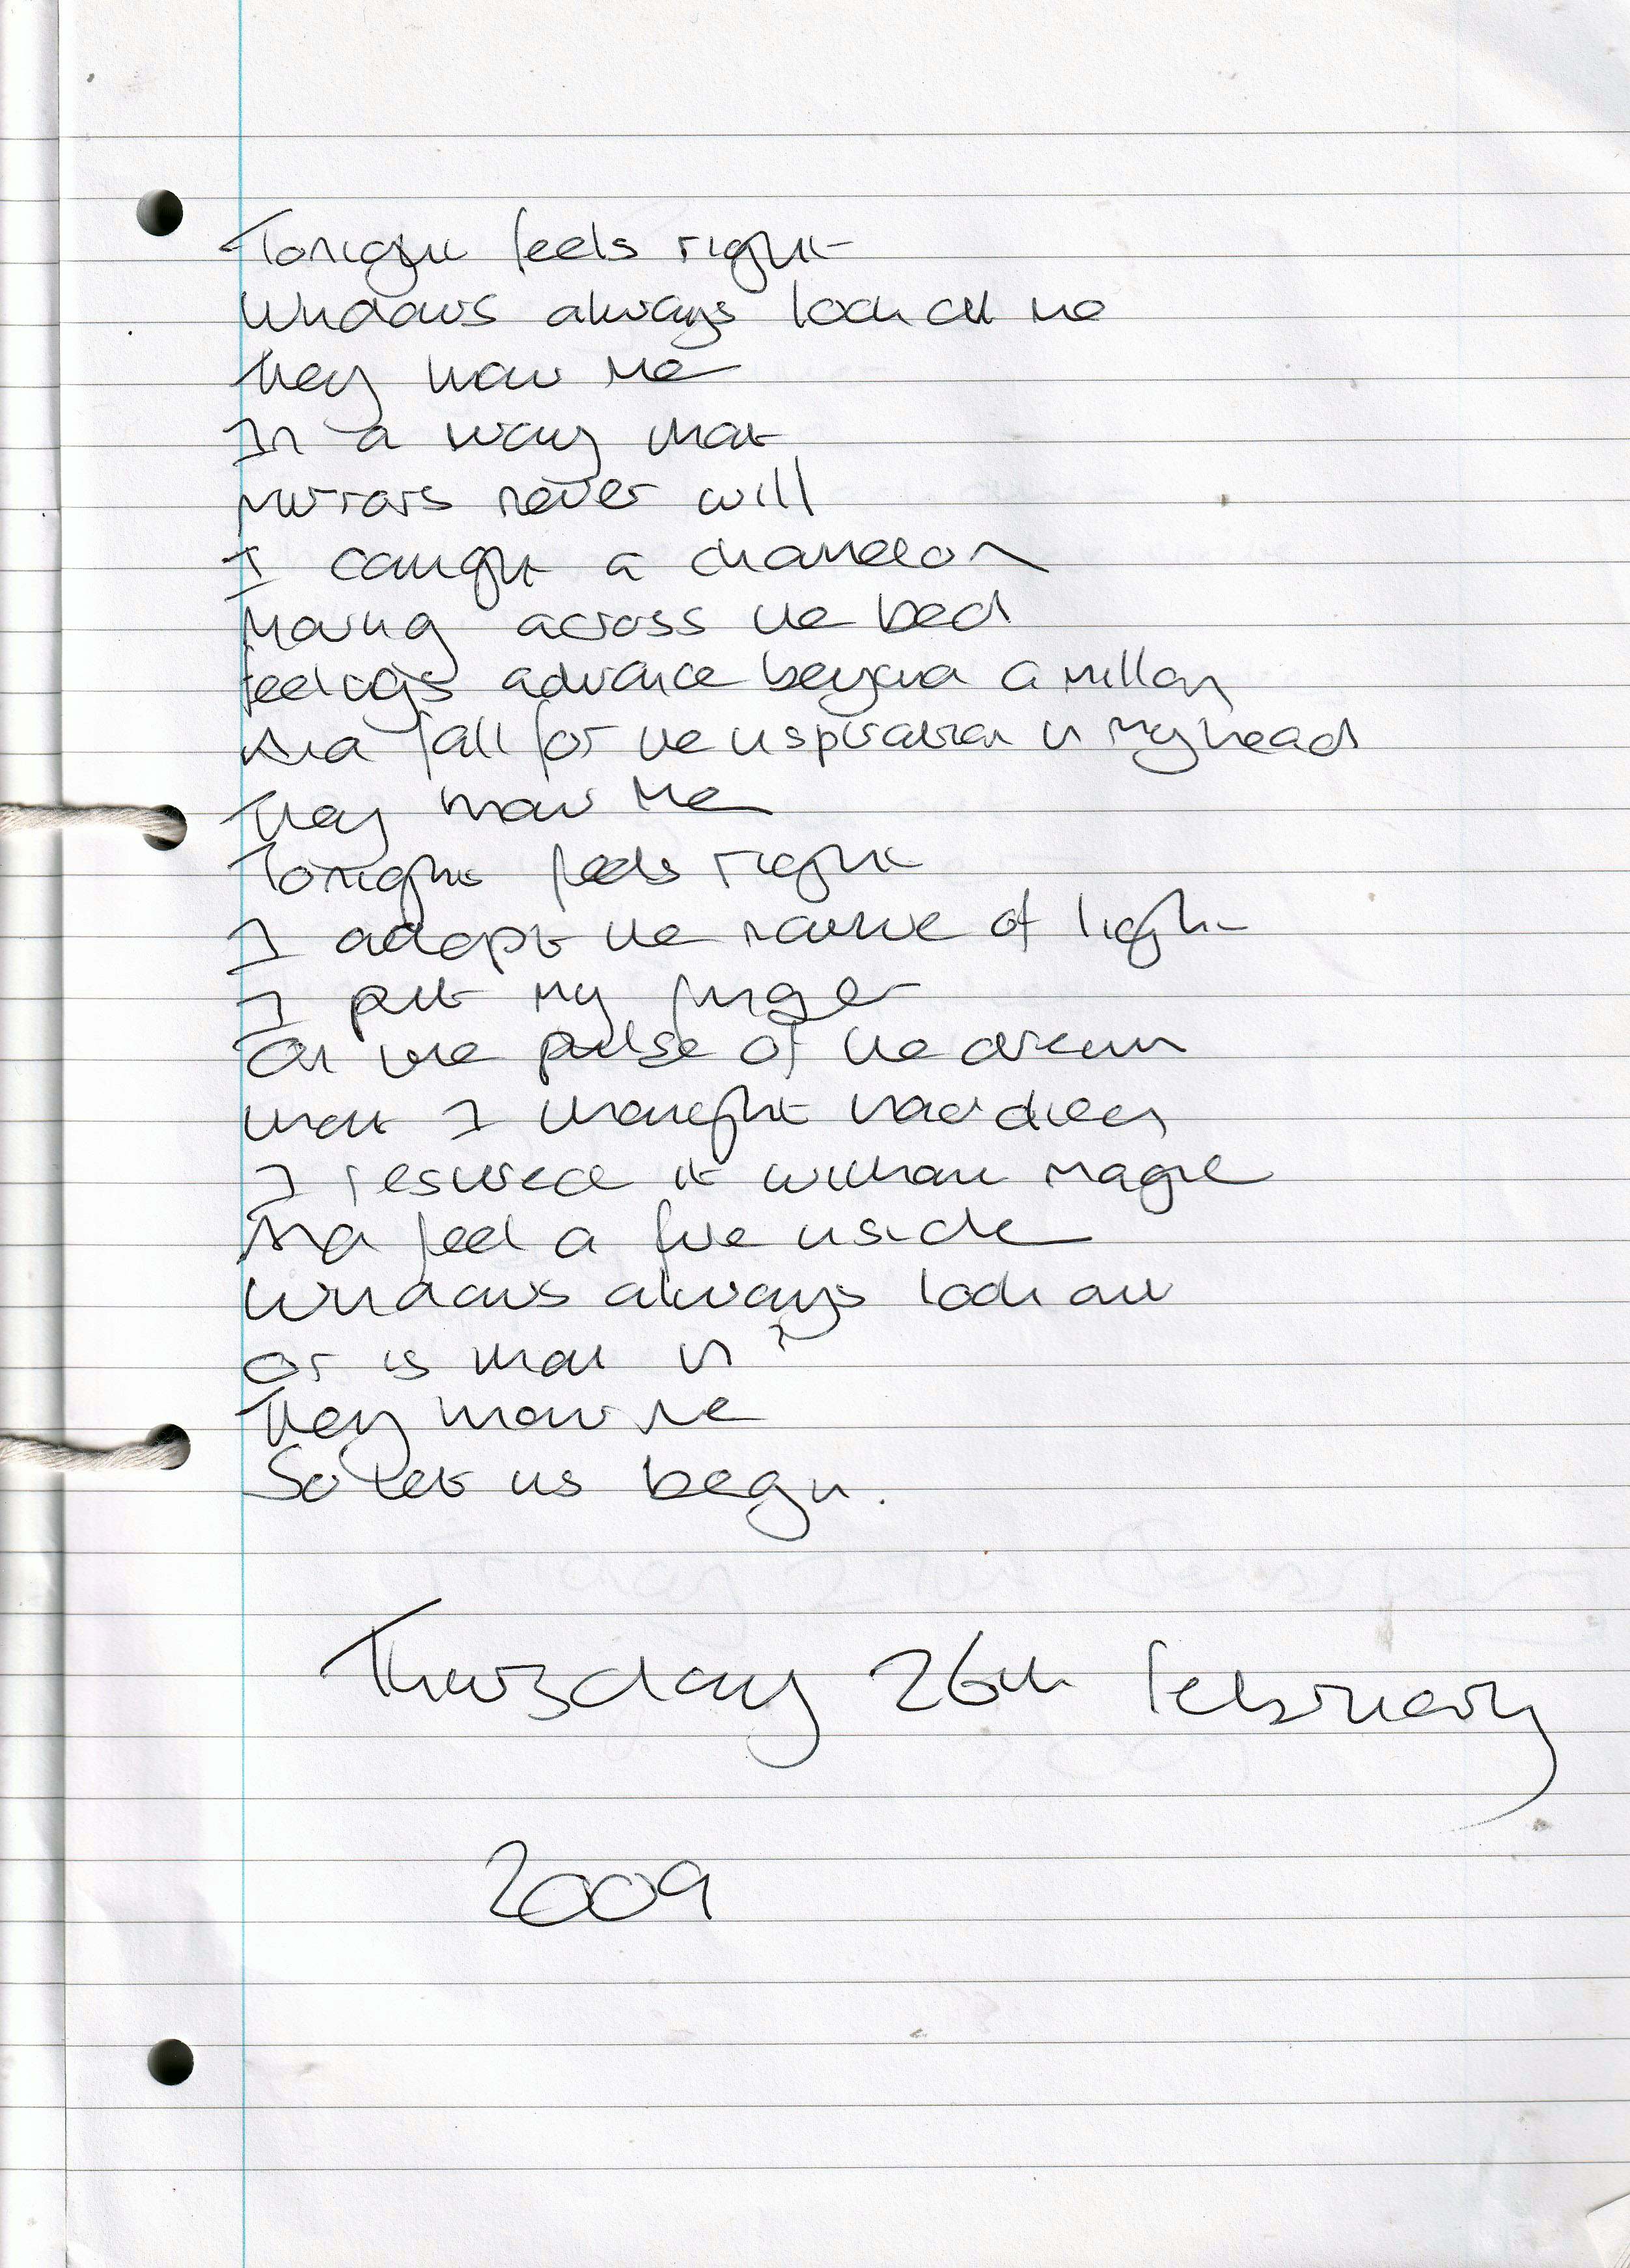 Tonight feels right
Windows always look at me
They know me
In a way that
Mirrors never will
I caught a chameleon
Moving across the bed
feelings advance beyond a million
And fall for the inspiration in my head
They know me
Tonight feels right
I adopt the nature of light
I put my finger
On the pulse of the dream
That I thought had died
I resurrect it without magic
And feel a fire inside
Windows always look out
Or is that in?
They know me
So let us begin.
Thursday 26th February
2009